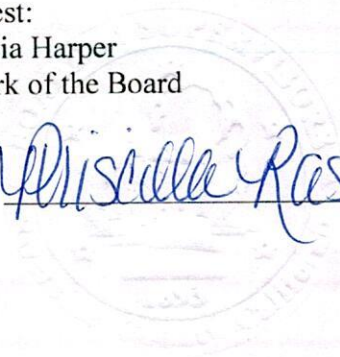 est:
ia Harper
rk of the Board
Priscilla Ras